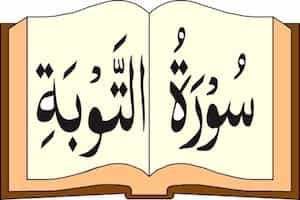 سُوْرَةُ التَّوْبَةِ